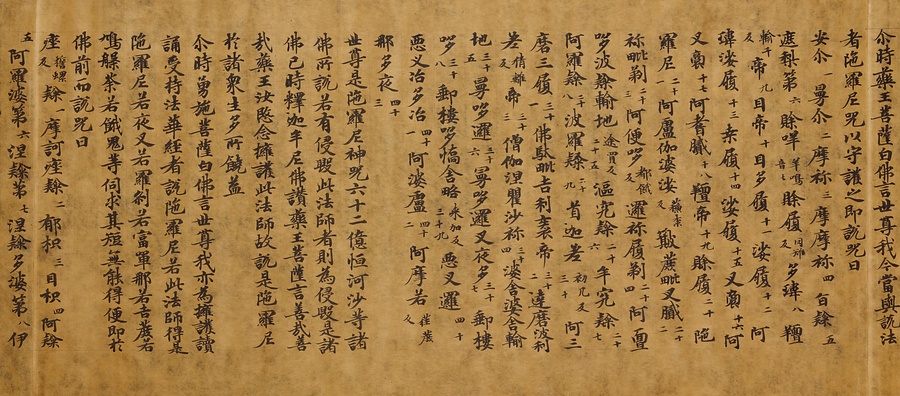 尒時藥王菩薩白佛言世尊我今當與說法
者陁羅尼呪以守護之即說呪曰
安尒一曼尒二摩祢三摩摩祢四百隸五
遮梨第六賖咩羊鳴音七賖履罔雉反多瑋八羶
輸千反帝九目帝十目多履十一娑履十二阿
瑋娑履十三桒履十四娑履十五叉裔十六阿
叉裔十七阿耆膩十八羶帝十九賖履二十陁
羅尼二十一阿盧伽婆娑蘇奈反簸蔗毗叉膩二十二
祢毗剃二十三阿便哆都餓反邏祢履剃二十四阿亶
哆波隸輸地途買反二十五漚究隸二十六牟究隸二十七
阿羅隸二十八波羅隸二十九首迦差初几反三十阿三
磨三履三十一佛䭾毗吉利袠帝三十二達磨波利
差猜離反帝三十三僧伽涅瞿沙祢三十四婆舍婆舍輸
地三十五曼哆邏三十六曼哆邏叉夜多三十七郵樓
哆三十八郵樓哆憍舍略來加反三十九惡叉邏四十
惡叉冶多冶四十一阿婆盧四十二阿摩若荏蔗反
那多夜四十三
世尊是陁羅尼神呪六十二億恒河沙等諸
佛所說若有侵毀此法師者則為侵毀是諸
佛已時釋迦牟尼佛讚藥王菩薩言善哉善
哉藥王汝愍念擁護此法師故說是陁羅尼
於諸衆生多所饒益
尒時勇施菩薩白佛言世尊我亦為擁護讀
誦受持法華經者說陁羅尼若此法師得是
陁羅尼若夜叉若羅剎若富單那若吉蔗若
鳩槃荼若餓鬼等伺求其短無能得便即於
佛前而說呪曰
座誓螺反隸一摩訶座隸二郁枳三目枳四阿隸
五阿羅婆第六涅隸第七涅隸多婆第八伊